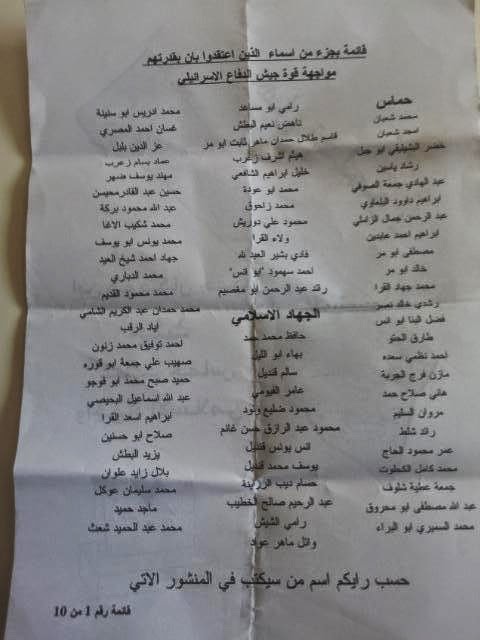 قائمة بجزء من اسماء الذين اعتقدوا بان بقدرتهم
مواجهة قوة جيش الدفاع الاسرائيلي
حماس
محمد شعبان
امجد شعبان
خضر الشبليقي ابو جل
رشاد ياسين
عبد الهادي جمعة الصوفي
ابراهيم داوود البلعاوي
عبد الرحمن جمال الزاملي
ابراهيم احمد عابدين
مصطفى ابو مر
خالد ابو مر
محمد جهاد القرا
رشدي خالد نصر
فضل البنا ابو انس
طارق الحتو
احمد نظمي سعده
مازن فرج الجربة
هاني صلاح حمد
مروان السليم
رائد شلط
عمر محمود الحاج
محمد كامل الكحلوت
جمعة عطية شلوف
عبد الله مصطفى ابو محروق
محمد السميري ابو البراء
رامي ابو مساعد
ناهض نعيم البطش
قاسم طلال حمدان ماهر ثابت ابو مر
هيثم اشرف زعرب
خليل ابراهيم الشافعي
محمد ابو عودة
محمد زاحوق
محمود علي دوريش
ولاء القرا
فادي بشير العبد لله
احمد سهمود "ابو انس"
رائد عبد الرحمن ابو مغصيم
الجهاد الاسلامي
حافظ محمد حمد
بهاء ابو الليل
سالم قنديل
عامر الفيومي
محمود ضليع ولود
محمود عبد الرازق حسن غانم
انس يونس قنديل
يوسف محمد قنديل
حسام ديب الرزاينة
عبد الرحيم صالح الخطيب
رامي الشيش
وائل ماهر عواد
محمد ادريس ابو سنينة
غسان احمد المصري
عز الدين بلبل
عماد بسام زعرب
مهند يوسف ضهير
حسين عبد القادر محيسن
عبد الله محمود بركة
محمد شكيب الاغا
محمد يونس ابو يوسف
جهاد احمد شيخ العيد
محمد الدباري
محمد محمود القديم
محمد حمدان عبد الكريم الشامي
اياد الرقب
احمد توفيق محمد زنون
صهيب علي جمعة ابو قوره
حميد صبح محمد ابو فوجو
عبد الله اسماعيل البحيصي
ابراهيم اسعد القرا
صلاح ابو حسنين
يزيد البطش
بلال زايد علوان
محمد سليمان عوكل
ماجد حميد
محمد عبد الحميد شعث
حسب رايكم اسم من سيكتب في المنشور الاتي
قائمة رقم 1 من 10